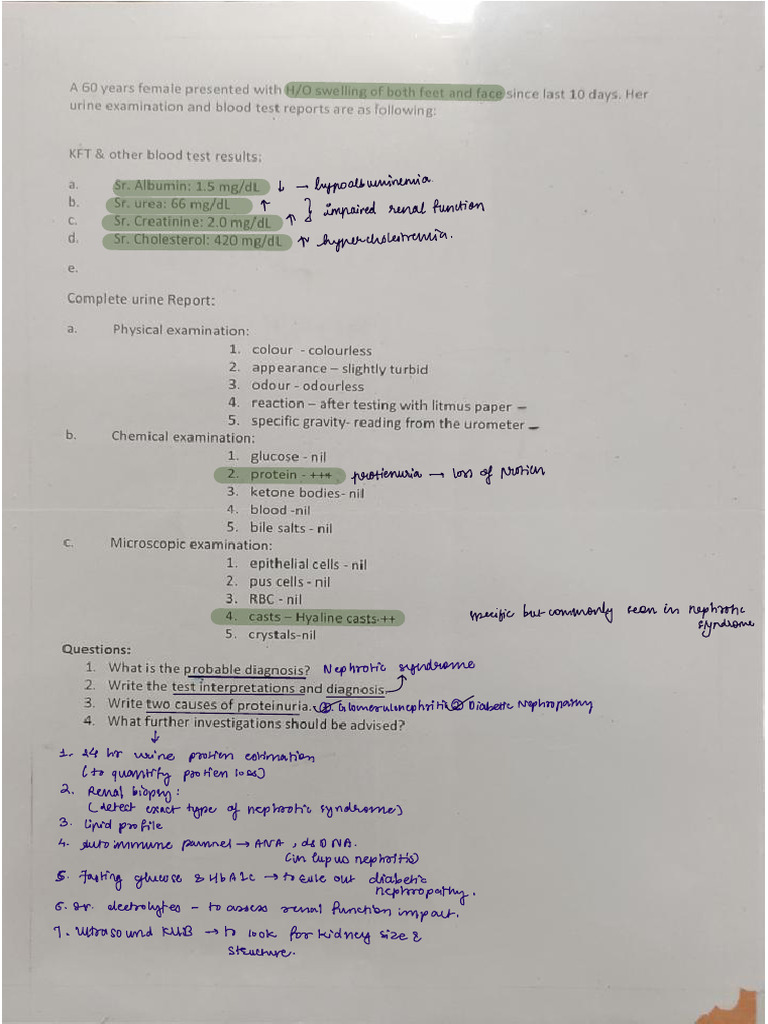 A 60 years female presented with H/O swelling of both feet and face since last 10 days. Her
urine examination and blood test reports are as following:
KFT & other blood test results:
a. Sr. Albumin: 1.5 mg/dL ↓ → hypoalbuminemia.
b. Sr. urea: 66 mg/dL ↑ } impaired renal function
c. Sr. Creatinine: 2.0 mg/dL ↑
d. Sr. Cholesterol: 420 mg/dL ↑ hypercholestremia.
e.
Complete urine Report:
a. Physical examination:
1. colour - colourless
2. appearance – slightly turbid
3. odour - odourless
4. reaction – after testing with litmus paper –
5. specific gravity- reading from the urometer –
b. Chemical examination:
1. glucose - nil
2. protein - +++ protienuria → loss of protien
3. ketone bodies- nil
4. blood -nil
5. bile salts - nil
c. Microscopic examination:
1. epithelial cells - nil
2. pus cells - nil
3. RBC - nil
4. casts – Hyaline casts ++ specific but commonly seen in nephrotic
syndrome
5. crystals-nil
Questions:
1. What is the probable diagnosis? Nephrotic syndrome
2. Write the test interpretations and diagnosis.
3. Write two causes of proteinuria. ① Glomerulonephritis ② Diabetic Nephropathy
4. What further investigations should be advised?
↓
1. 24 hr urine protien estimation
(to quantify protien loss)
2. Renal biopsy:
(detect exact type of nephrotic syndrome)
3. lipid profile
4. Autoimmune pannel → ANA, dsDNA.
(in lupus nephritis)
5. Fasting glucose & HbA1c → to rule out diabetic
nephropathy.
6. Sr. electrolytes – to assess renal function impact.
7. Ultrasound KUB → to look for kidney size &
structure.